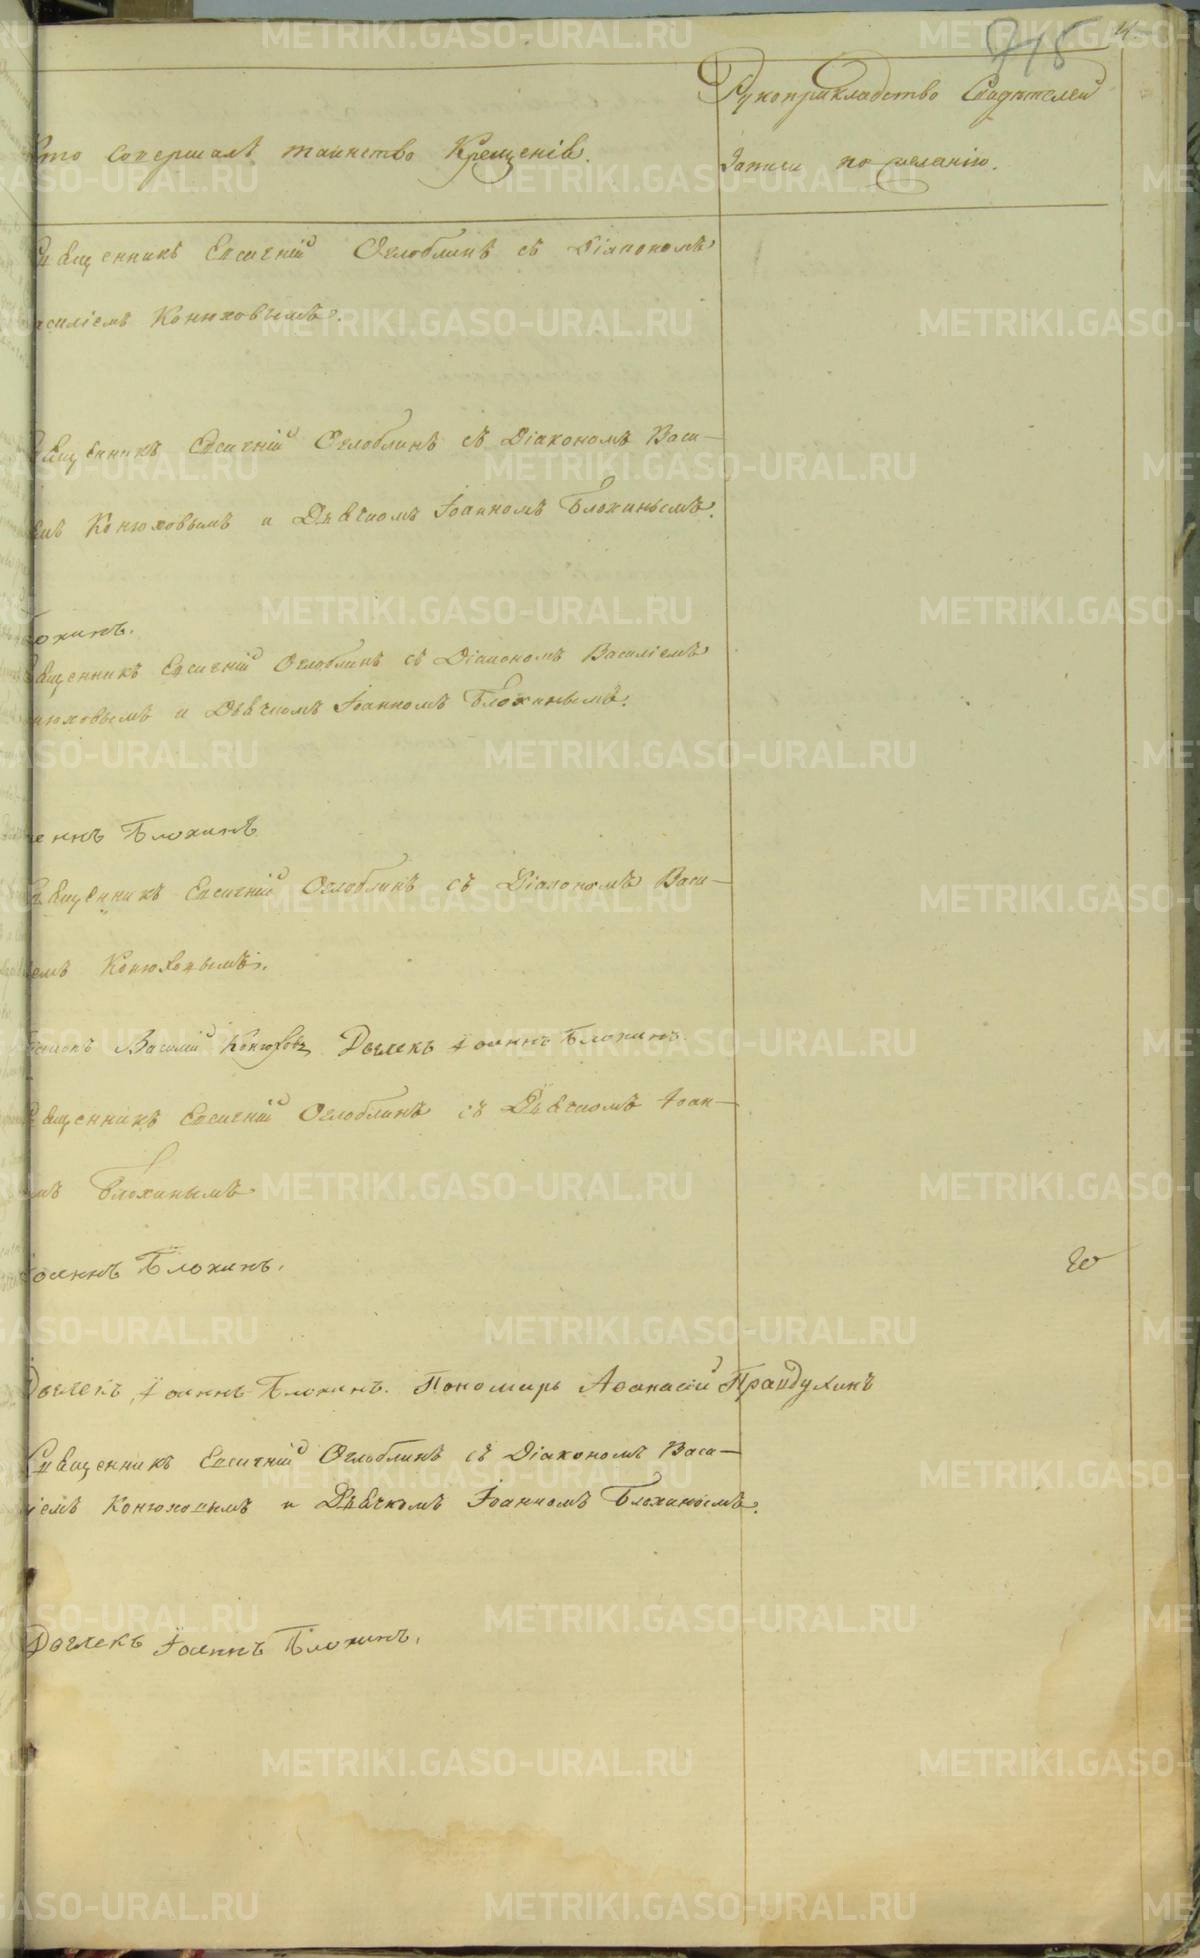 718
Рукоприкладство Свидѣтелей
Кто Совершалъ таинство Крещенія.
Записи по желанію.
Священникъ Евсигній Оглоблинъ съ Діакономъ
Василіемъ Конюховымъ.
Священникъ Евсигній Оглоблинъ съ Діакономъ Васи-
емъ Конюховымъ и Дьячкомъ Іоанномъ Блохинымъ.
Блохинъ.
Священникъ Евсигній Оглоблинъ съ Діакономъ Василіемъ
Конюховымъ и Дьячкомъ Іоанномъ Блохинымъ.
Іоаннъ Блохинъ
Священникъ Евсигній Оглоблинъ съ Діакономъ Васи-
емъ Конюховымъ.
Діаконъ Василій Конюховъ Дьячекъ Іоаннъ Блохинъ.
Священникъ Евсигній Оглоблинъ съ Дьячкомъ Іоан-
омъ Блохинымъ
Іоаннъ Блохинъ.
Дьячекъ Іоаннъ Блохинъ. Пономарь Аѳанасій Правдухинъ
Священникъ Евсигній Оглоблинъ съ Діакономъ Васи-
ліемъ Конюховымъ и Дьячкомъ Іоанномъ Блохинымъ.
Дьячекъ Іоаннъ Блохинъ.
METRIKI.GASO-URAL.RU